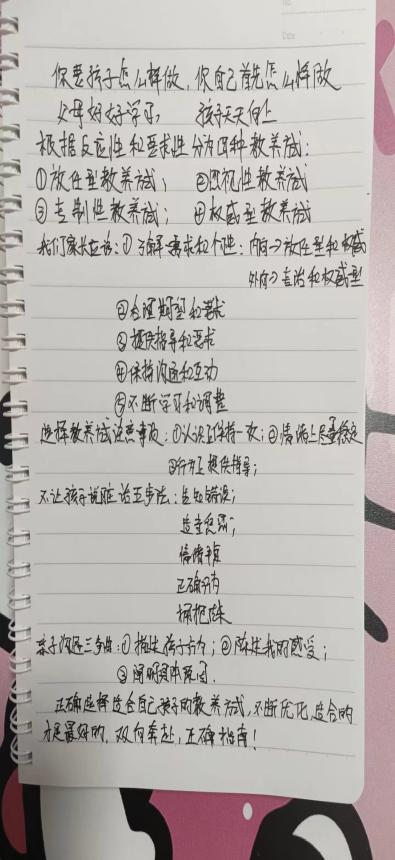 No.
Date
你要孩子怎么样做，你自己首先怎么样做
父母好好学习，孩子天天向上
根据反应性和要求性分为四种教养式：
①放任型教养式；②忽视性教养式
③专制性教养式；④权威型教养式
我们家长应该：①了解需求和个性：内向→放任型和权威
外向→专治和权威型
②合理期望和要求
③提供指导和要求
④保持沟通和互动
⑤不断学习和调整
选择教养式注意事项：①认识上保持一致；②情绪上尽量稳定
③行为上提供指导；
不让孩子说脏话五步法：告知错误；
适当惩罚；
情绪
正确
拥抱
亲子沟通三步曲：①描述孩子行为；②陈述我的感受；
③阐明具体原因.
正确选择适合自己孩子的教养式，不断优化，适合的
才是最好的，双向奔赴，正确指南！